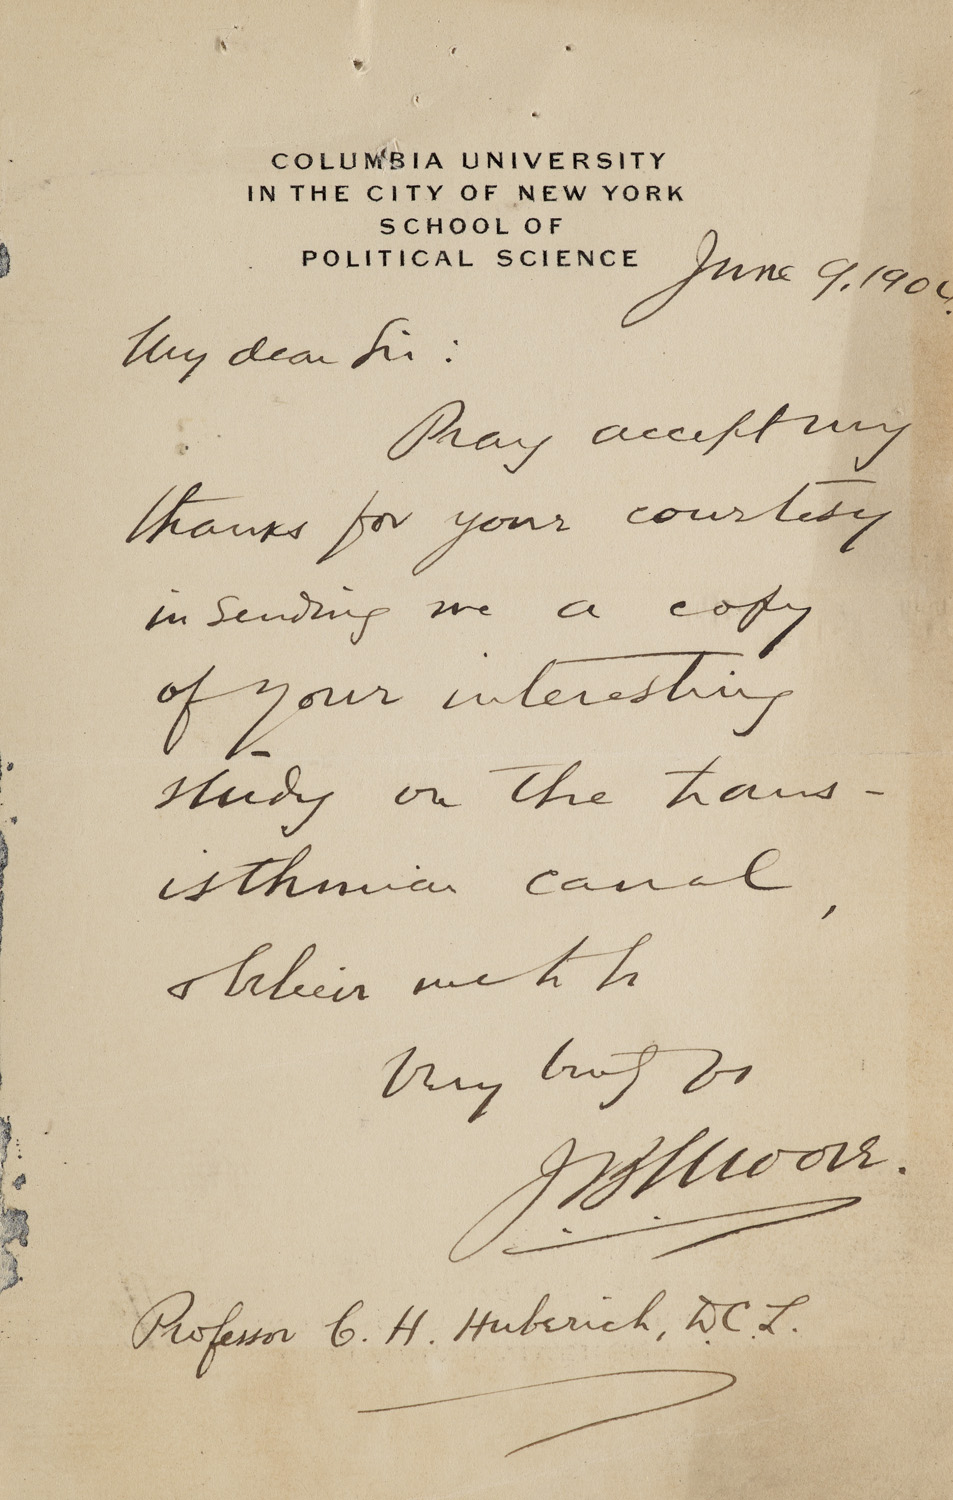 COLUMBIA UNIVERSITY
IN THE CITY OF NEW YORK
SCHOOL OF
POLITICAL SCIENCE
June 9, 190
My dear Sir :
Pray accept my
thanks for your courtesy
in sending me a copy
of your interesting
study on the trans-
isthmian canal,
& believe me to be
Very truly yrs
J B Moore.
Professor C. H. Huberich, D.C.L.